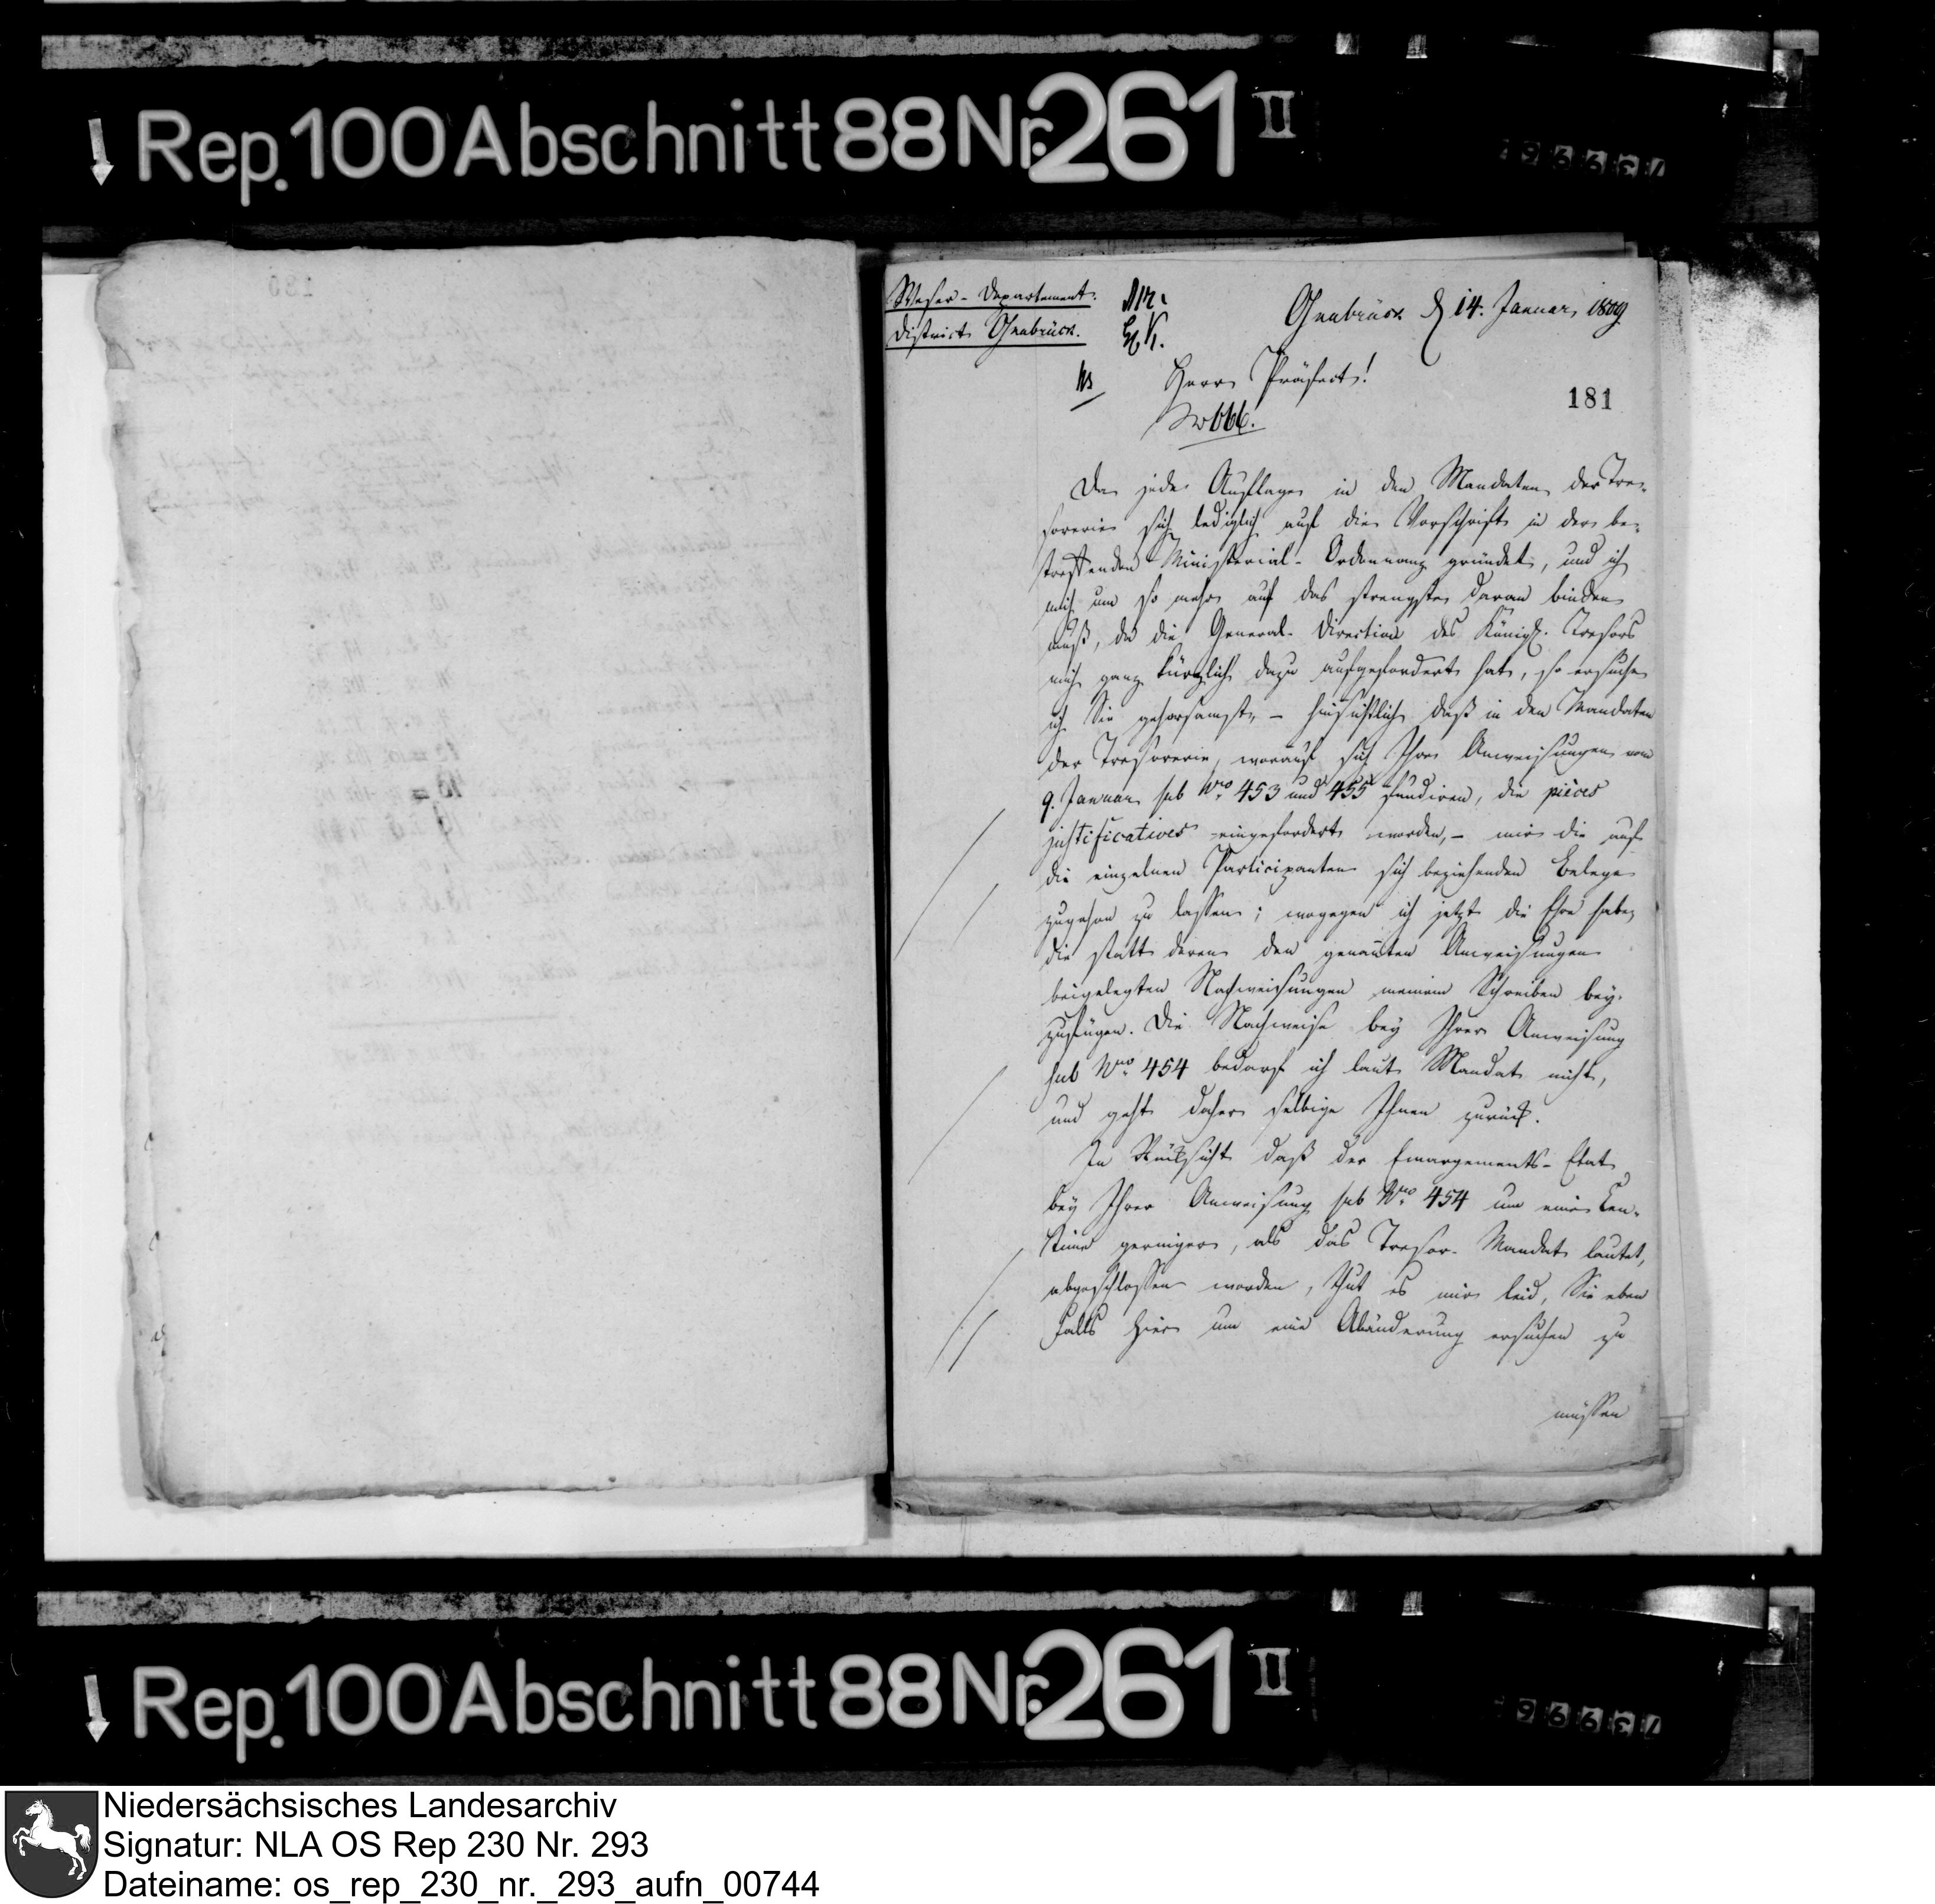 Rep. 100 Abschnitt 88 Nr. 261 II
Weser-Departement.
District Osnabrück.
Osnabrück d. 14. Januar 1809
Herr Präfect!
181
Da jede Auflage in den Mandaten der Tre-
sorerie sich lediglich auf die Vorschrift in der be-
treffenden Ministerial-Ordonnanz gründet, und ich
mich um so mehr auf das strengste daran binden
muß, da die General-Direction des Königl. Tresors
mich ganz kürzlich dazu aufgefordert hat, so ersuche
ich Sie gehorsamst, – hinsichtlich daß in den Mandaten
der Tresorerie, worauf sich Ihre Anweisungen vom
9. Januar sub Nro. 453 und 455 fundiren, die pièces
justificatives eingefordert worden, – mir die auf
die einzelnen Participanten sich beziehenden Belege
zugehen zu lassen; wogegen ich jetzt die Ehre habe,
die statt deren den genannten Anweisungen
beigelegten Nachweisungen meinem Schreiben bey-
zufügen. Die Nachweise bey Ihrer Anweisung
sub Nro. 454 bedarf ich laut Mandat nicht,
und geht daher selbige Ihnen zurück.
In Rücksicht daß der Emargements-Etat
bey Ihrer Anweisung sub Nro. 454 um eine Cen-
time geringer, als das Tresor-Mandat lautet,
abgeschlossen worden, thut es mir leid, Sie eben
falls hier um eine Abänderung ersuchen zu
müssen
Rep. 100 Abschnitt 88 Nr. 261 II
Niedersächsisches Landesarchiv
Signatur: NLA OS Rep 230 Nr. 293
Dateiname: os_rep_230_nr._293_aufn_00744